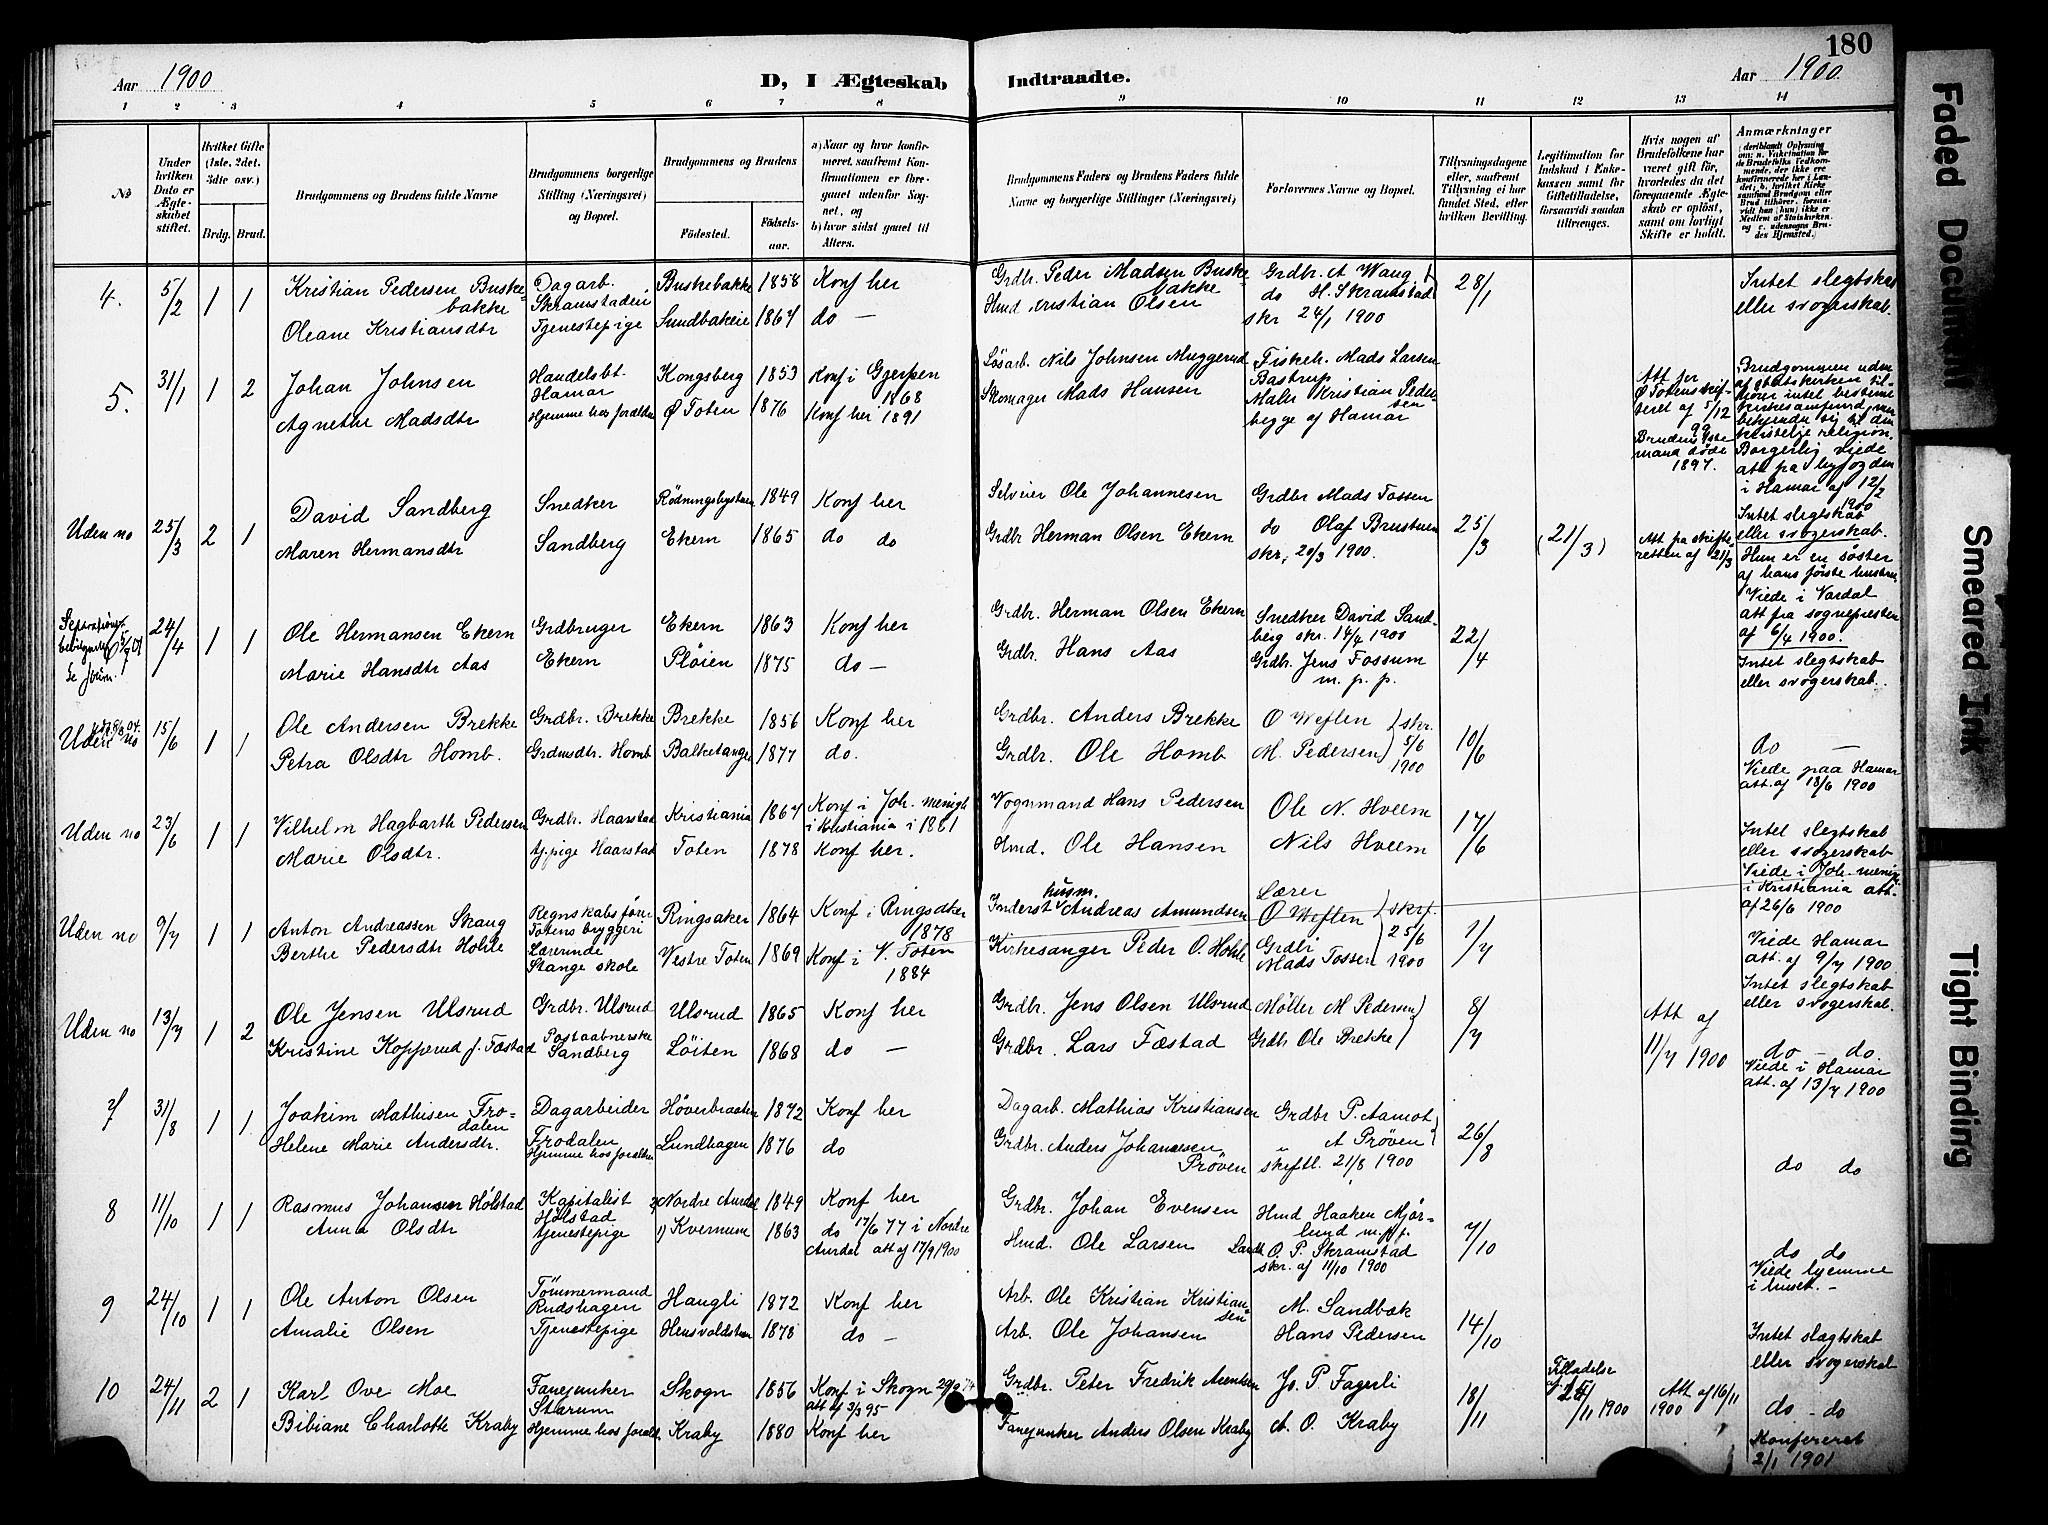 180
Aar 1900
D, I Ægteskab Indtraadte.
Aar 1900.
1 2 3 4 5 6 7 8 9 10 11 12 13 14
No
Under hvilken Dato er Ægteskabet stiftet.
Hvilket Gifte (1ste, 2det, 3die osv.)
Brdg. Brud.
Brudgommens og Brudens fulde Navne
Brudgommens borgerlige Stilling (Næringsvei) og Bopæl.
Brudgommens og Brudens
Fødested. Fødselsaar.
a) Naar og hvor konfirmeret, saafremt Konfirmationen er foregaaet udenfor Sognet, og
b) hvor sidst gaaet til Alters.
Brudgommens Faders og Brudens Faders fulde Navne og borgerlige Stillinger (Næringsvei)
Forlovernes Navne og Bopæl.
Tillysningsdagene eller, saafremt Tillysning ei har fundet Sted, efter hvilken Bevilling.
Legitimation for Indskud i Enkekassen samt for Giftetilladelse, forsaavidt saadan tiltrænges.
Hvis nogen af Brudefolkene har været gift før, hvorledes da det foregaaende Ægteskab er opløst, samt om lovligt Skifte er holdt.
Anmærkninger
4. 5/2 1 1
Kristian Pedersen Buskebakke
Oleane Kristiansdtr
Dagarb. Skramstadeie
Tjenestepige
Buskebakke 1858 Konf her
Sundbakeie 1867 do —
Grdbr. Peder Madsen Buskebakke
Hmd Kristian Olsen
Grdbr. A Waug
do H. Skramstad
skr 24/1 1900
28/1
Intet slegtskab
eller svogerskab.
5. 31/1 1 2
Johan Johnsen
Agnethe Madsdtr
Handelsbt. Hamar
Hjemme hos foraldre
Kongsberg 1853 Konf i Gjerpen 1868
Ø Toten 1876 Konf her 1891
Løsarb. Nils Johnsen Muggerud
Skomager Mads Hansen
Fiskeh. Mads Larsen Bastrup
Maler Kristian Pedersen
begge af Hamar
Att fra
Ø Totens skifteret af 5/12 99
Brudens 1ste
mand døde
1897.
Borgerlig viede
att fra byfogden
i Hamar af 12/2 1900
Uden no 25/3 2 1
David Sandberg
Maren Hermansdtr
Snedker
Sandberg
Rødningsbystuen 1849 Konf her
Ekern 1865 do do
Selveier Ole Johannesen
Grdbr Herman Olsen Ekern
Grdbr Mads Fossen
do Olaf Brustuen
skr, 20/3 1900.
25/3
(21/3)
Att fra skifteretten af 21/3
Intet slegtskab
eller svogerskab.
Hun er en søster
af hans første hustru
Viede i Vardal
att fra sognepresten
af 6/4 1900.
24/4 1 1
Ole Hermansen Ekern
Marie Hansdtr Aas
Grdbruger
Ekern
Ekern 1863 Konf her
Pløien 1875 do —
Grdbr. Herman Olsen Ekern
Grdbr. Hans Aas
Snedker David Sandberg skr. 14/4 1900
Grdbr. Jens Fossum
m. p. p.
22/4
Intet slegtskab
eller svogerskab.
Uden no 15/6 1 1
Ole Andersen Brekke
Petra Olsdtr Homb.
Grdbr. Brekke
Grdmsdtr. Homb
Brekke 1856 Konf her
Balketangen 1877 do.
Grdbr. Anders Brekke
Grdbr. Ole Homb
O Weflen
M. Pedersen
skr. 5/6 1900
10/6
do —
Viede paa Hamar
att. af 18/6 1900
Uden no 23/6 1 1
Vilhelm Hagbarth Pedersen
Marie Olsdtr.
Grdbr. Haarstad
tjpige Haarstad
Kristiania 1867 Konf i Joh. menigh
i Kristiania i 1881
Toten 1878 Konf her.
Vognmand Hans Pedersen
Hmd. Ole Hansen
Ole N. Hveem
Nils Hveem
17/6
Intet slegtskab
eller svogerskab
Viede i Joh. menigh
i Kristiania att.
af 26/6 1900
Uden no 9/7 1 1
Anton Andreassen Skaug
Berthe Pedersdtr Hohle
Regnskabsfører
Totens bryggeri
Lærerinde
Stange skole
Ringsaker 1864 Konf i Ringsaker 1878
Vestre Toten 1869 Konf i V. Toten 1884
husm.
Inderst Andreas Amundsen
Kirkesanger Peder O. Hohle
Lærer
O Weflen
Grdbr
Mads Fossen
skr. 25/6 1900
1/7
Viede Hamar
att. af 9/7 1900
Intet slegtskab
eller svogerskab.
Uden no 13/7 1 2
Ole Jensen Ulsrud
Kristine Kopperud f. Fæstad
Grdbr. Ulsrud
Postaabnerske
Sandberg
Ulsrud 1865 Konf her
Løiten 1868 do —
Grdbr. Jens Olsen Ulsrud
Grdbr. Lars Fæstad
Møller M Pedersen
Grdbr Ole Brekke
8/7
Att af
11/7 1900
do - do.
Viede i Hamar
att. af 13/7 1900
7 31/8 1 1
Joakim Mathisen Frodalen
Helene Marie Andersdtr.
Dagarbeider
Frodalen
Hjemme hos foraldre
Høverbraaten 1872 Konf her
Lundhagen 1876 do
Dagarb. Mathias Kristiansen
Grdbr. Anders Johannesen Prøven
Grdbr P. Aamot
" A Prøven
skriftl. 21/8 1900
26/8
do do
8 11/10 1 1
Rasmus Johansen Hølstad
Anna Olsdtr
Kapitalist
Hølstad
tjenestepige
2) Nordre Aurdal 1849 Konf her
1) Kvernum 1863 do 17/6 77 i Nordre
Aurdal att af 17/9 1900
Grdbr. Johan Evensen
Hmd. Ole Larsen
Hmd Haaken Mjørlund m.p.p.
Landh. O. P. Skramstad
skr. af 11/10 1900
7/10
do do
Viede hjemme
i huset. -
9 24/10 1 1
Ole Anton Olsen
Amalie Olsen
Tømmermand
Rudshagen
Tjenestepige
Haugli 1872 Konf her
Hensvoldstuen 1878 do —
Arb. Ole Kristian Kristiansen
Arb. Ole Johansen
M. Sandbæk
Hans Pedersen
14/10
Intet slægtskab
eller svogerskab
10 24/11 2 1
Karl Ove Moe
Bibiane Charlotte Kraby
Fanejunker
Starum
Hjemme hos forald.
Skogn 1856 Konf i Skogn
att af 3/3 95
Kraby 1880 Konf her
Grdbr. Peter Fredrik Arentsen
Fanejunker Anders Olsen Kraby
Jo. P. Fagerli
A. O. Kraby
18/11
Tilladelse
af 24/11 1900
Att af 16/11
1900
do - do
Konfereret
2/1 1901
Faded Document
Smeared Ink
Tight Binding